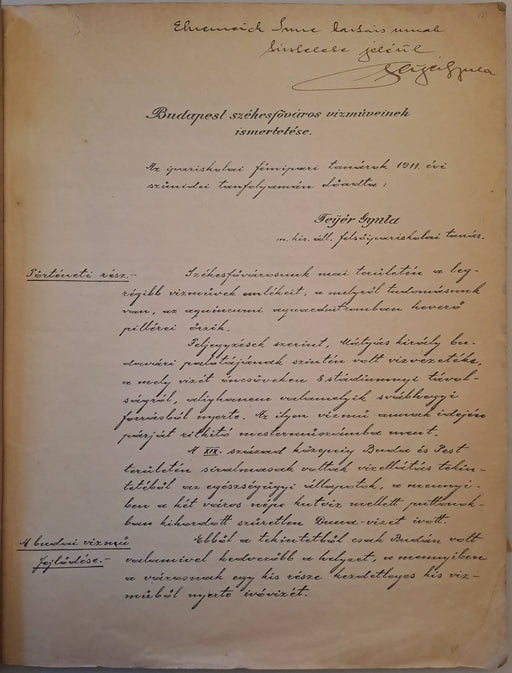 Ehrenreich Imre kartárs urnak
tisztelete jeléül
Fejér Gyula
Budapest székesfőváros vizműveinek
ismertetése.
Az ipariskolai fémipari tanárok 1911. évi
szünidei tanfolyamán előadta:
Fejér Gyula
m. kir. áll. felsőipariskolai tanár.
Történeti rész.-
Székesfővárosunk mai területén a leg-
régibb vizművek emlékeit, a melyről tudomásunk
van, az aquincumi aquaeductusnak heverő
pillérei őrzik.
Feljegyzések szerint, Mátyás király bu-
davári palotájának szintén volt vizvezetéke,
a mely vizét óncsöveken 8 stádiumnyi távol-
ságról, alighanem valamelyik svábhegyi
forrásból nyerte. Az ilyen vizmű annak idején
párját ritkitó mesterműszámba ment.
A XIX. század közepéig Buda és Pest
területén siralmasak voltak vizellátás tekin-
tetéből az egészségügyi állapotok, a mennyi-
ben a két város népe kutviz mellett puttonok-
ban kihordott szüretlen Duna-vizet ivott.
A budai vizmű
fejlődése.-
Ebből a tekintetből csak Budán volt
valamivel kedvezőbb a helyzet, a mennyiben
a városnak egy kis része kezdetleges kis viz-
műből nyerte ivóvizét.